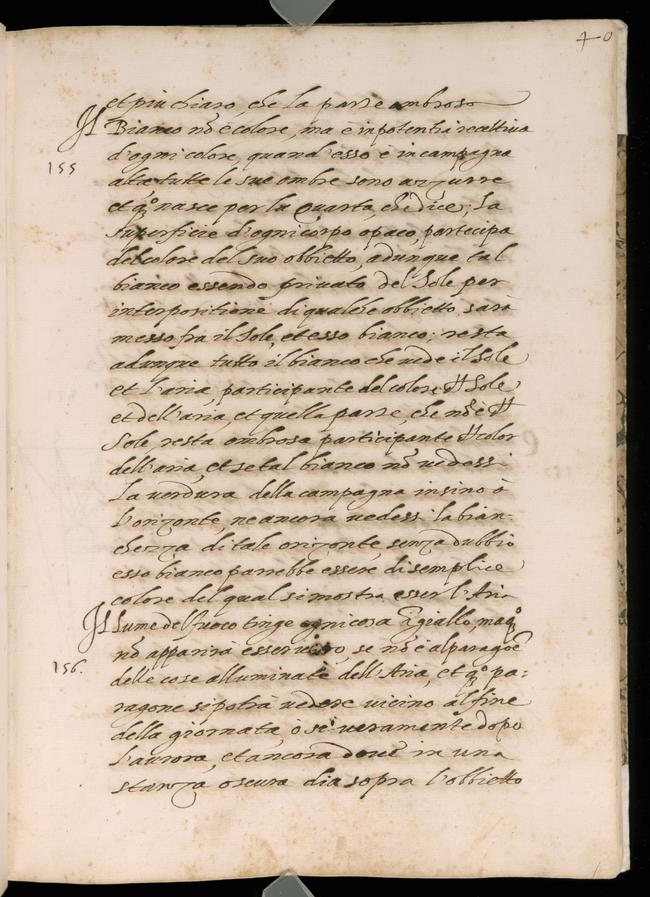 40
et piu chiaro, che la parte ombrosa
Il Bianco nō è colore, ma è in potentia recettiva
155
d'ogni colore, quand'esso è in campagna
alta tutte le sue ombre sono azzurre
et q.º nasce per la quarta, che dice; La
superficie d'ogni corpo opaco, partecipa
del colore del suo obbietto, adunque tal
bianco essendo privato del Sole per
interpositione di qualche obbietto, sarà
messo, fra il Sole, et esso bianco; resta
adunque tutto il bianco che vede il Sole
et l'aria, participante del colore Sole
et dell'aria, et quella parte, che nō è
Sole, resta ombrosa participante color
dell'aria, et se tal bianco nō vedessi
La verdura della campagna insino à
l'orizonte, ne ancora vedessi la bian-
chezza di tale orizonte, senza dubbio
esso bianco parrebbe essere di semplice
colore del qual si mostra esser l'Aria
Il lume del fuoco tinge ogni cosa in giallo, ma q.º
nō apparirà esser vero, se nō è al paragoē
156.
delle cose alluminate dell'Aria, et q.º pa:
ragone si potrà vedere vicino al fine
della giornata, ò se veramente dopo
l'aurora, et ancora dove in una
stanza oscura dia sopra l'obbietto